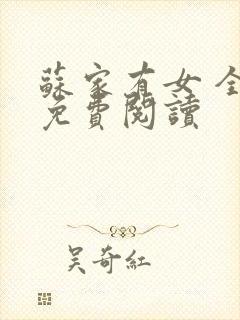 蘇家有女 全
免費閱讀
吴奇紅